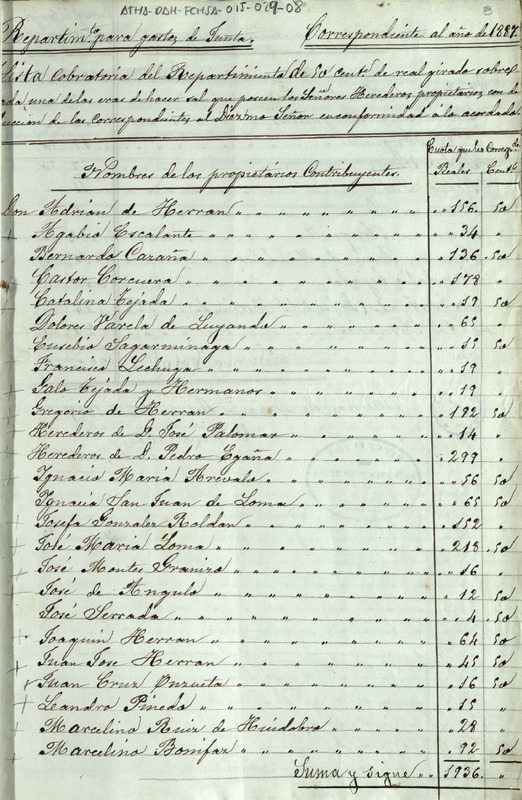 ATHA-DAH-FCHSA-015-029-08
Repartimto para gastos de Junta. Correspondiente al año de 1887.
Lista cobratoria del Repartimiento de 50 cents de real girado sobre
cada una de las eras de hacer sal que poseen los Señores Herederos propietarios con de
duccion de las correspondientes al Diezmo Señor en conformidad a lo acordado
Cuota que les corresp.de
Nombres de los propietarios Contribuyentes. Reales Cents
Don Adrian de Herran " 156 50
" Agabio Escalante " 34 "
Bernardo Cazaña " 136 50
Castor Corcuera " 178 "
Catalina Tejada " 19 50
Dolores Varela de Luyando " 65 "
Eusebio Sagarminaga " 15 50
Francisco Lechuga " 19 "
Galo Tejada y Hermanos " 19 "
Gregorio de Herran " 192 50
Herederos de D. José Palomar " 14 "
Herederos de D. Pedro Egaña " 299 "
Ignacio María Arévalo " 56 50
Ignacia San Juan de Loma " 65 50
Josefa Gonzalez Roldan " 152 "
José María Loma " 213 50
José Montes Gramzo " 16 "
José de Angulo " 12 50
José Serrada " 4 50
Joaquin Herran " 64 50
Juan José Herran " 45 50
Juan Cruz Onzueta " 16 50
Leandro Pinedo " 15 "
Marcelino Ruiz de Huidobro " 28 "
Marcelino Bonifaz " 92 50
Suma y sigue " 1936 "